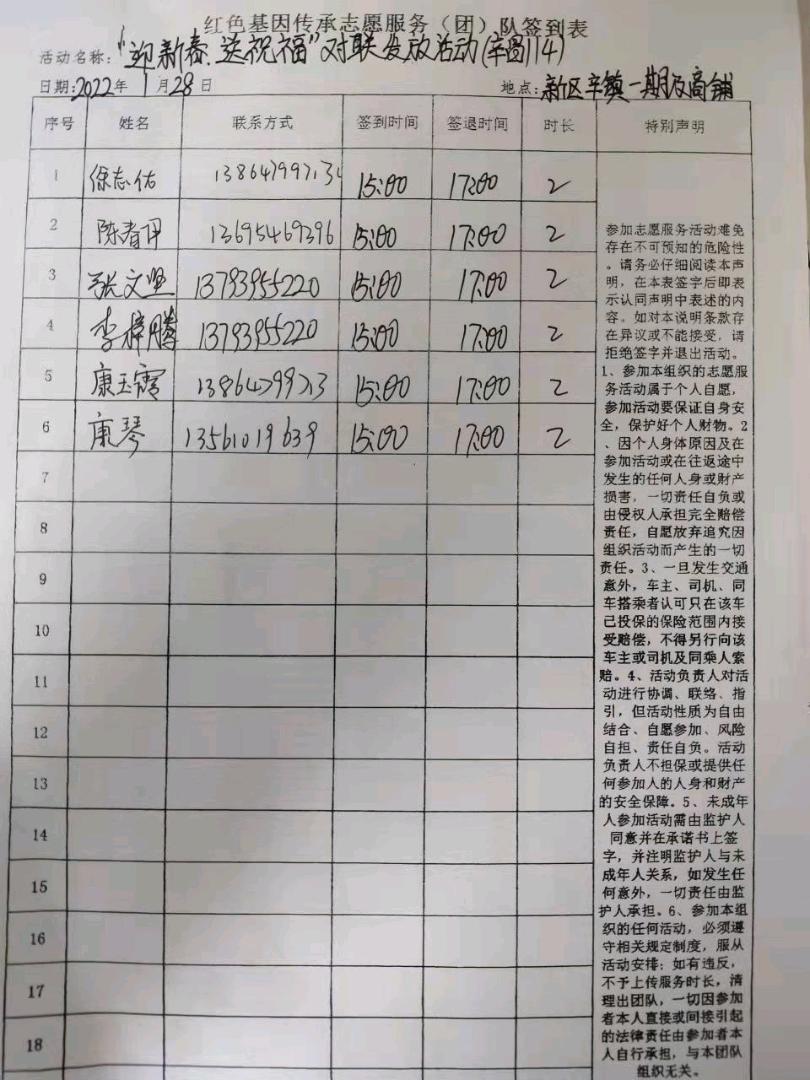 红色基因传承志愿服务（团）队签到表
活动名称："迎新春.送祝福"对联发放活动(辛圈114)
日期:2022年1月28日 地点:新区辛镇一期及商铺
序号 姓名 联系方式 签到时间 签退时间 时长 特别声明
1 徐志佑 15:00 17:00 2
2 陈春 13695469396 15:00 17:00 2
3 张文坚 13793955220 15:00 17:00 2
4 李梓腾 13793955220 15:00 17:00 2
5 康玉霞 15:00 17:00 2
6 康琴 13561019639 15:00 17:00 2
7
8
9
10
11
12
13
14
15
16
17
18
参加志愿服务活动难免
存在不可预知的危险性
。请务必仔细阅读本声
明，在本表签字后即表
示认同声明中表述的内
容。如对本说明条款存
在异议或不能接受，请
拒绝签字并退出活动。
1、参加本组织的志愿服
务活动属于个人自愿，
参加活动要保证自身安
全，保护好个人财物。2
、因个人身体原因及在
参加活动或在往返途中
发生的任何人身或财产
损害，一切责任自负或
由侵权人承担完全赔偿
责任，自愿放弃追究因
组织活动而产生的一切
责任。3、一旦发生交通
意外，车主、司机、同
车搭乘者认可只在该车
已投保的保险范围内接
受赔偿，不得另行向该
车主或司机及同乘人索
赔。4、活动负责人对活
动进行协调、联络、指
引，但活动性质为自由
结合、自愿参加、风险
自担、责任自负。活动
负责人不担保或提供任
何参加人的人身和财产
的安全保障。5、未成年
人参加活动需由监护人
同意并在承诺书上签
字，并注明监护人与未
成年人关系，如发生任
何意外，一切责任由监
护人承担。6、参加本组
织的任何活动，必须遵
守相关规定制度，服从
活动安排；如有违反，
不予上传服务时长，清
理出团队，一切因参加
者本人直接或间接引起
的法律责任由参加者本
人自行承担，与本团队
组织无关。